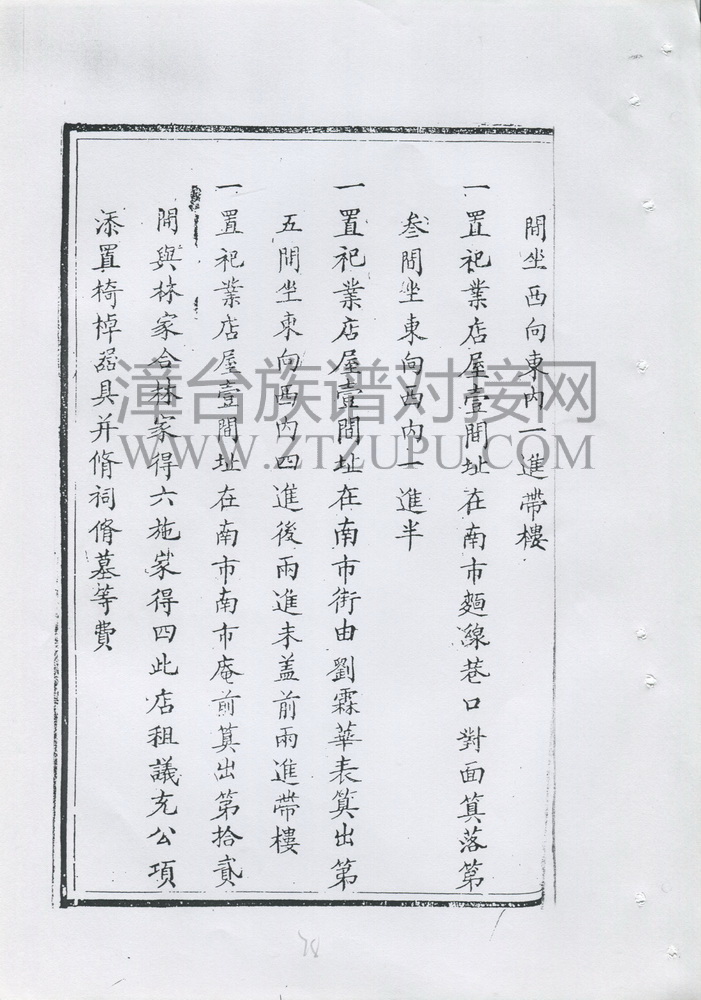 間坐西向東內一進帶樓
一置祀業店屋壹間址在南市麵線巷口對面算落第
叁間坐東向西內一進半
一置祀業店屋壹間址在南市街由劉霖華表算出第
五間坐東向西內四進後兩進未盖前兩進帶樓
一置祀業店屋壹間址在南市南市庵前算出第拾貳
間與林家合林家得六施家得四此店租議充公項
添置椅棹器具并脩祠脩墓等費
漳台族谱对接网
WWW.ZTZUPU.COM
78